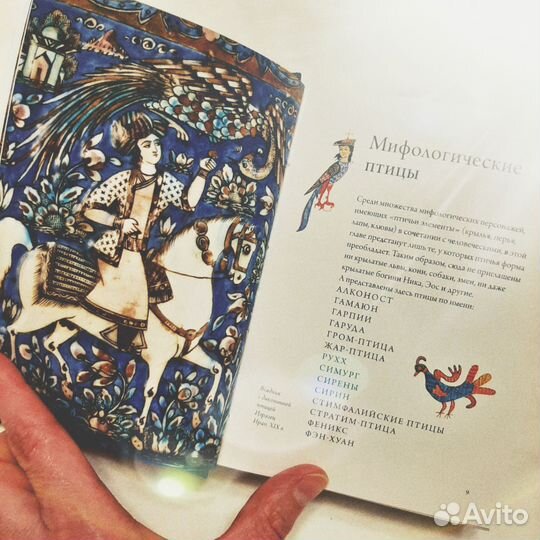 Мифологические
птицы
Среди множества мифологических персонажей,
имеющих «птичьи элементы» (крылья, перья,
лапы, клювы) в сочетании с человеческими, в этой
главе предстанут лишь те, у которых птичья форма
преобладает. Таким образом, сюда не приглашены
ни крылатые львы, кони, собаки, змеи, ни даже
крылатые богини Ника, Эос и другие.
А представлены здесь птицы по имени:
АЛКОНОСТ
ГАМАЮН
ГАРПИИ
ГАРУДА
ГРОМ-ПТИЦА
ЖАР-ПТИЦА
РУХХ
СИМУРГ
СИРЕНЫ
СИРИН
СТИМФАЛИЙСКИЕ ПТИЦЫ
СТРАТИМ-ПТИЦА
ФЕНИКС
ФЭН-ХУАН
Всадник
с диковинной
птицей
Изразец
Иран, XIX в.
9
Avito